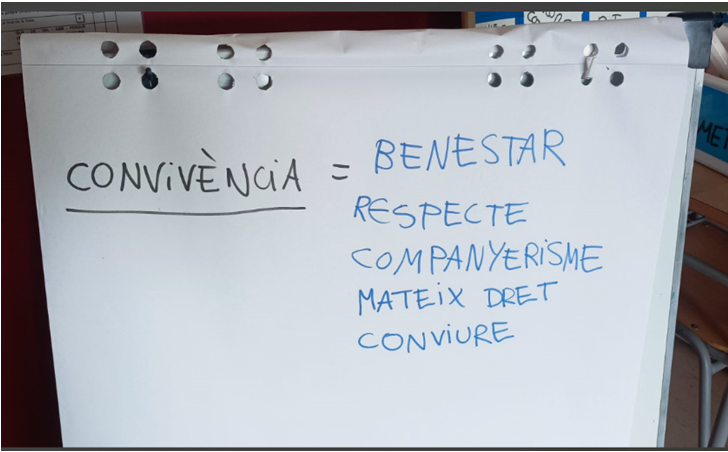 CONVIVÈNCIA = BENESTAR
RESPECTE
COMPANYERISME
MATEIX DRET
CONVIURE
MET